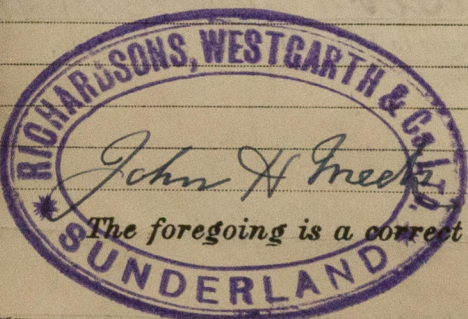 RICHARDSONS, WESTGARTH & Co. LTD.
John H Meek
The foregoing is a correct
SUNDERLAND